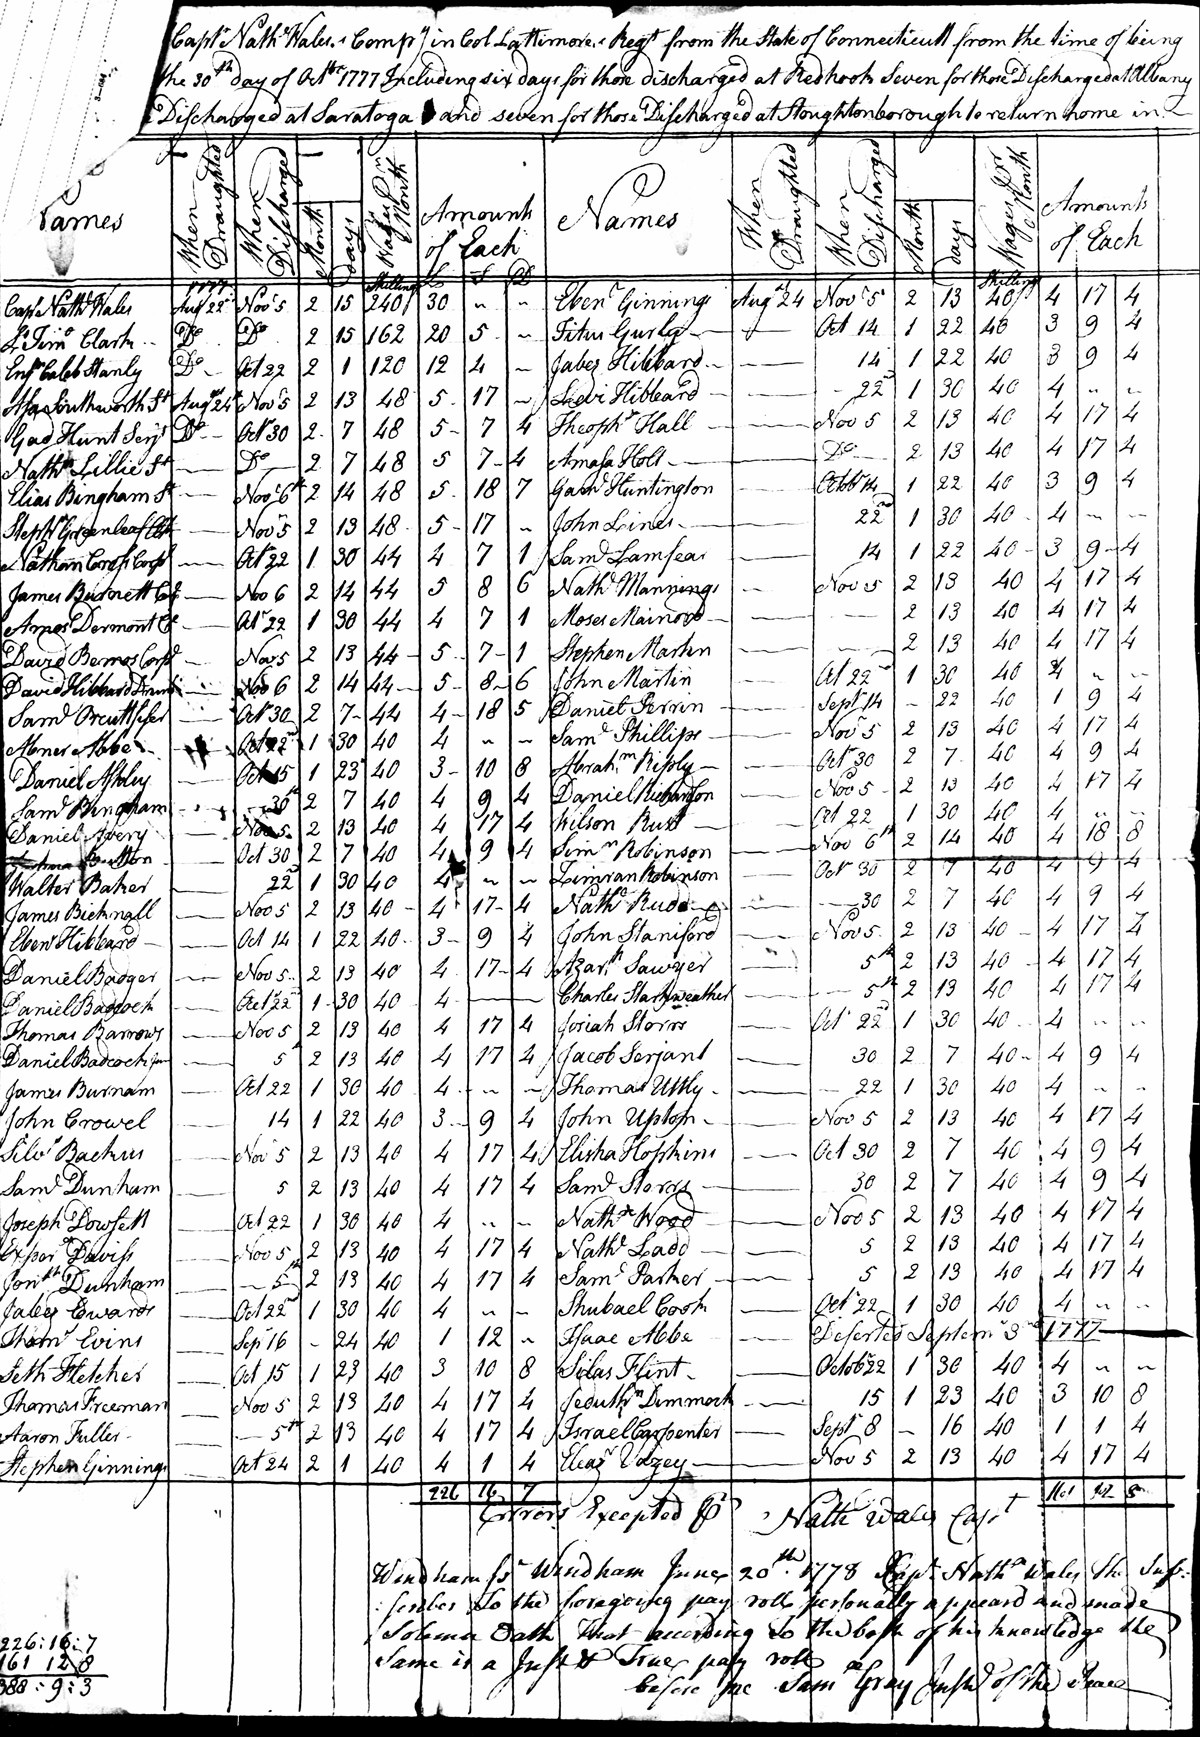 Capt Nathl Wales's Compy in Col Lattimore's Regt from the State of Connecticutt from the time of being
the 30th day of Octbr 1777 Including six days for those discharged at Redhook Seven for those Discharged at Albany
Discharged at Saratoga and seven for those Discharged at Stoughtonborough to return home in
Names When Draughted When Discharged Month days Wages Pr Month Amount of Each Names When Draughted When Discharged Month days Wages Pr Month Amounts of Each
1777 Shillings L S D Shillings
Capt Nathl Wales Augt 22d Novr 5 2 15 240/ 30 " " Ebenr Ginnings Augt 24 Novr 5 2 13 40/ 4 17 4
Lt Timo Clark Do Do 2 15 162 20 5 " Titus Gurley Oct 14 1 22 40 3 9 4
Ensn Caleb Stanly Do Oct 22 2 1 120 12 4 " Jabez Hibbard 14 1 22 40 3 9 4
Asa Southworth St Augt 24 Novr 5 2 13 48 5 17 " Levi Hibbard 22d 1 30 40 4 " "
Gad Hunt Serjt Do Oct 30 2 7 48 5 7 4 Theophs Hall Nov 5 2 13 40 4 17 4
Nathl Lillie St Do 2 7 48 5 7 4 Amasa Holt Do 2 13 40 4 17 4
Elias Bingham St Novr 6th 2 14 48 5 18 7 Gamel Huntington Octobr 14 1 22 40 3 9 4
Stephn Greenleaf Novr 5 2 13 48 5 17 " John Lines 22d 1 30 40 4 " "
Nathan Cross Corpl Oct 22 1 30 44 4 7 1 Saml Lamfear 14 1 22 40 3 9 4
James Burnett Nov 6 2 14 44 5 8 6 Nathl Mannings Nov 5 2 13 40 4 17 4
Amos Dormont Oct 22 1 30 44 4 7 1 Moses Mainord 2 13 40 4 17 4
David Bemos Corpl Nov 5 2 13 44 5 7 1 Stephen Martin 2 13 40 4 17 4
David Hibbard Drum Nov 6 2 14 44 5 8 6 John Martin Oct 22d 1 30 40 4 " "
Saml Orcutt fifer Oct 30 2 7 44 4 18 5 Daniel Perrin Sept 14 22 40 1 9 4
Abner Abbe Oct 22d 1 30 40 4 " " Saml Phillips Nov 5 2 13 40 4 17 4
Daniel Ashley Oct 15 1 23 40 3 10 8 Abrahm Riply Oct 30 2 7 40 4 9 4
Saml Bingham 30th 2 7 40 4 9 4 Daniel Richardson Nov 5 2 13 40 4 17 4
Daniel Avery Nov 5 2 13 40 4 17 4 Wilson Rust Oct 22 1 30 40 4 " "
Oct 30 2 7 40 4 9 4 Simn Robinson Nov 6th 2 14 40 4 18 8
Walter Baker 22d 1 30 40 4 " " Limran Robinson Oct 30 2 7 40 4 9 4
James Bicknall Nov 5 2 13 40 4 17 4 Nathl Rudd 30 2 7 40 4 9 4
Ebenr Hibbard Oct 14 1 22 40 3 9 4 John Staniford Nov 5 2 13 40 4 17 4
Daniel Badger Nov 5 2 13 40 4 17 4 Azarh Sawyer 5th 2 13 40 4 17 4
Daniel Badcock Oct 22d 1 30 40 4 Charles Starkweather 5th 2 13 40 4 17 4
Thomas Barrows Nov 5 2 13 40 4 17 4 Josiah Storrs Oct 22d 1 30 40 4 " "
Daniel Badcock Jun 5 2 13 40 4 17 4 Jacob Serjant 30 2 7 40 4 9 4
James Burnam Oct 22 1 30 40 4 " " Thomas Uttly 22 1 30 40 4 " "
John Crowel 14 1 22 40 3 9 4 John Upton Nov 5 2 13 40 4 17 4
Silvs Backus Nov 5 2 13 40 4 17 4 Elisha Hopkins Oct 30 2 7 40 4 9 4
Saml Dunham 5 2 13 40 4 17 4 Saml Storrs 30 2 7 40 4 9 4
Joseph Dowsett Oct 22 1 30 40 4 " " Nathl Wood Nov 5 2 13 40 4 17 4
Exper Daviss Nov 5 2 13 40 4 17 4 Nathl Ladd 5 2 13 40 4 17 4
Jonth Dunham 5th 2 13 40 4 17 4 Saml Parker 5 2 13 40 4 17 4
Jabez Ewards Oct 22d 1 30 40 4 " " Shubael Cook Oct 22 1 30 40 4 " "
Thoms Evins Sep 16 24 40 1 12 " Isaac Abbe Deserted Septemr 3d 1777
Seth Fletcher Oct 15 1 23 40 3 10 8 Silas Flint Octobr 22 1 30 40 4 " "
Thomas Freeman Nov 5 2 13 40 4 17 4 Jeduthn Dimmock 15 1 23 40 3 10 8
Aaron Fuller 5th 2 13 40 4 17 4 Israel Carpenter Sept 8 16 40 1 1 4
Stephen Ginnings Oct 24 2 1 40 4 1 4 Eleazr Udzey Nov 5 2 13 40 4 17 4
226 16 7 161 12 8
Errors Excepted Pr Nathl Wales Capt
Windham ss Windham June 20th 1778 Capt Nathl Wales the Sub-
scriber to the foregoing pay roll personally appeard and made
Solemn Oath That according to the best of his knowledge the
Same is a Just & True pay roll
before me Saml Gray Justs of the Peace
226:16:7
161 12 8
388:9:3